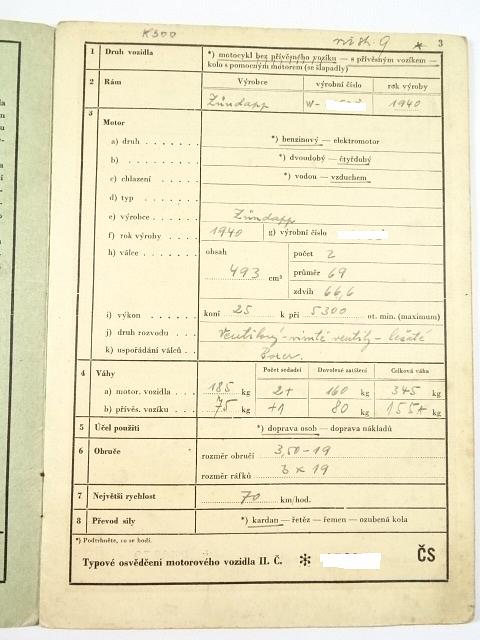 K500
3
1 Druh vozidla *) motocykl bez přívěsného vozíku — s přívěsným vozíkem —
kolo s pomocným motorem (se šlapadly)
2 Rám Výrobce výrobní číslo rok výroby
Zündapp W- 1940
3 Motor
a) druh *) benzinový — elektromotor
b) *) dvoudobý — čtyřdobý
c) chlazení *) vodou — vzduchem
d) typ
e) výrobce Zündapp
f) rok výroby 1940 g) výrobní číslo
h) válce obsah 493 cm³ počet 2
průměr 69
zdvih 66,6
i) výkon koní 25 k při 5300 ot. min. (maximum)
j) druh rozvodu Ventilový - visuté ventily - ležaté
k) uspořádání válců Boxer.
4 Váhy Počet sedadel Dovolené zatížení Celková váha
a) motor. vozidla 185 kg 2+ 160 kg 345 kg
b) přívěs. vozíku 75 kg +1 80 kg 155+ kg
5 Účel použití *) doprava osob — doprava nákladů
6 Obruče rozměr obručí 3,50-19
rozměr ráfků 3 x 19
7 Největší rychlost 70 km/hod.
8 Převod síly *) kardan — řetěz — řemen — ozubená kola
*) Podtrhněte, co se hodí.
Typové osvědčení motorového vozidla II. Č. ČS